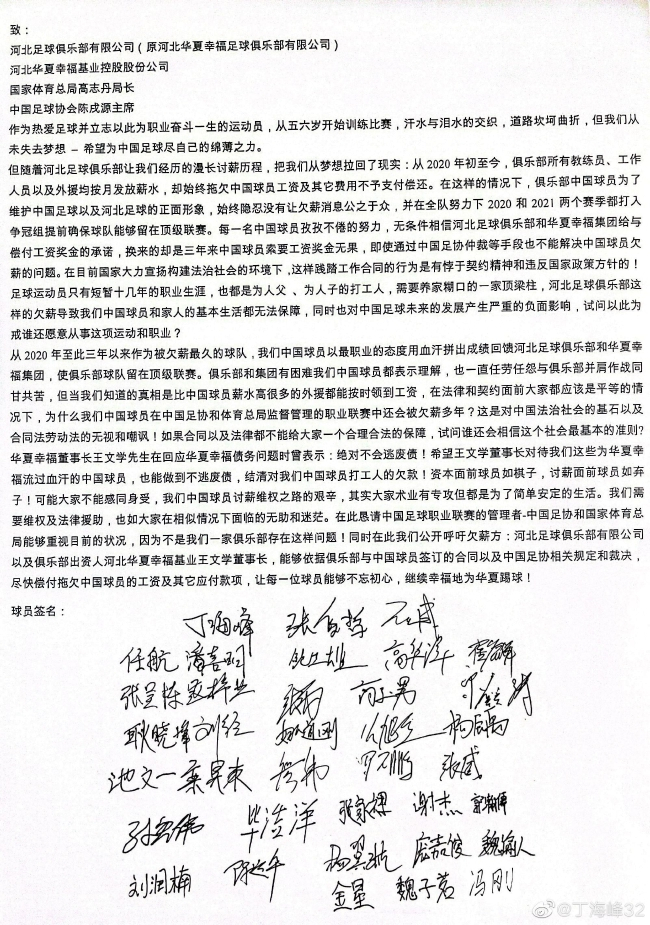 致：
河北足球俱乐部有限公司（原河北华夏幸福足球俱乐部有限公司）
河北华夏幸福基业控股股份公司
国家体育总局高志丹局长
中国足球协会陈戌源主席
作为热爱足球并立志以此为职业奋斗一生的运动员，从五六岁开始训练比赛，汗水与泪水的交织，道路坎坷曲折，但我们从
未失去梦想 – 希望为中国足球尽自己的绵薄之力。
但随着河北足球俱乐部让我们经历的漫长讨薪历程，把我们从梦想拉回了现实：从 2020 年初至今，俱乐部所有教练员、工作
人员以及外援均按月发放薪水，却始终拖欠中国球员工资及其它费用不予支付偿还。在这样的情况下，俱乐部中国球员为了
维护中国足球以及河北足球的正面形象，始终隐忍没有让欠薪消息公之于众，并在全队努力下 2020 和 2021 两个赛季都打入
争冠组提前确保球队能够留在顶级联赛。每一名中国球员孜孜不倦的努力，无条件相信河北足球俱乐部和华夏幸福集团给与
偿付工资奖金的承诺，换来的却是三年来中国球员索要工资奖金无果，即使通过中国足协仲裁等手段也不能解决中国球员欠
薪的问题。在目前国家大力宣扬构建法治社会的环境下，这样践踏工作合同的行为是有悖于契约精神和违反国家政策方针的！
足球运动员只有短暂十几年的职业生涯，也都是为人父 、为人子的打工人，需要养家糊口的一家顶梁柱，河北足球俱乐部这
样的欠薪导致我们中国球员和家人的基本生活都无法保障，同时也对中国足球未来的发展产生严重的负面影响，试问以此为
戒谁还愿意从事这项运动和职业？
从 2020 年至此三年以来作为被欠薪最久的球队，我们中国球员以最职业的态度用血汗拼出成绩回馈河北足球俱乐部和华夏幸
福集团，使俱乐部球队留在顶级联赛。俱乐部和集团有困难我们中国球员都表示理解，也一直任劳任怨与俱乐部并肩作战同
甘共苦，但当我们知道的真相是比中国球员薪水高很多的外援都能按时领到工资，在法律和契约面前大家都应该是平等的情
况下，为什么我们中国球员在中国足协和体育总局监督管理的职业联赛中还会被欠薪多年？这是对中国法治社会的基石以及
合同法劳动法的无视和嘲讽！如果合同以及法律都不能给大家一个合理合法的保障，试问谁还会相信这个社会最基本的准则?
华夏幸福董事长王文学先生在回应华夏幸福债务问题时曾表示：绝对不会逃废债！希望王文学董事长对待我们这些为华夏幸
福流过血汗的中国球员，也能做到不逃废债，结清对我们中国球员打工人的欠款！资本面前球员如棋子，讨薪面前球员如弃
子！可能大家不能感同身受，我们中国球员讨薪维权之路的艰辛，其实大家术业有专攻但都是为了简单安定的生活。我们需
要维权及法律援助，也如大家在相似情况下面临的无助和迷茫。在此恳请中国足球职业联赛的管理者-中国足协和国家体育总
局能够重视目前的状况，因为不是我们一家俱乐部存在这样问题！同时在此我们公开呼吁欠薪方：河北足球俱乐部有限公司
以及俱乐部出资人河北华夏幸福基业王文学董事长，能够依据俱乐部与中国球员签订的合同以及中国足协相关规定和裁决，
尽快偿付拖欠中国球员的工资及其它应付款项，让每一位球员能够不忘初心，继续幸福地为华夏踢球！
球员签名：
丁海峰
任航 潘喜明 高华泽
张呈栋 寇梓
耿晓峰 刘 杨
池文一 张威
毕浩洋 张家 谢杰
刘润楠 杨 庞嘉俊
金星 魏子茗 冯刚
@丁海峰32